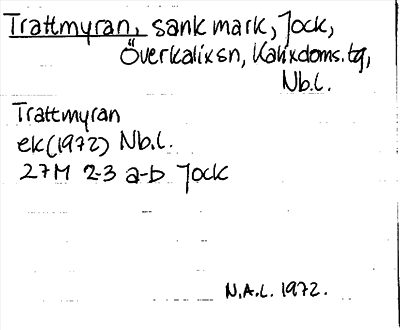 Trattmyran, sank mark, Jock,
Överkalixsn, Kalixdoms.tg,
Nb.l.
Trattmyran
ek(1972) Nb.l.
27M 2-3 a-b Jock
N.A.L. 1972.